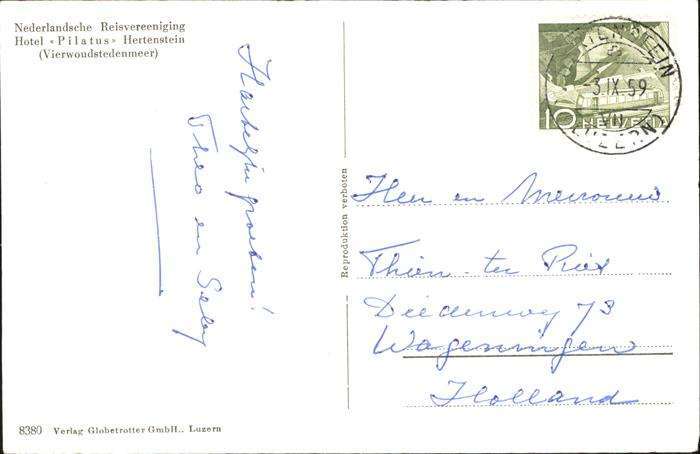 Nederlandsche Reisvereeniging
Hotel «Pilatus» Hertenstein
(Vierwoudstedenmeer)
Hartelijke groeten!
Theo en
8380 Verlag Globetrotter GmbH., Luzern
Reproduktion verboten
10 HELVETIA
HERTENSTEIN
-3.IX.59
VII
(LUZERN)
Heer en Mevrouw
Thien - ter
Diedenweg 73
Wageningen
Holland